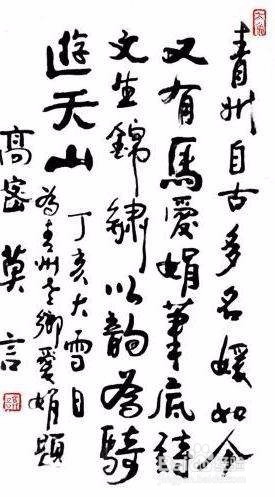 青州自古多名媛如今
又有馬愛娟筆底詩
文生錦繡以韵為騎
遊天山
丁亥大雪日
為青州老鄉愛娟題
高密莫言